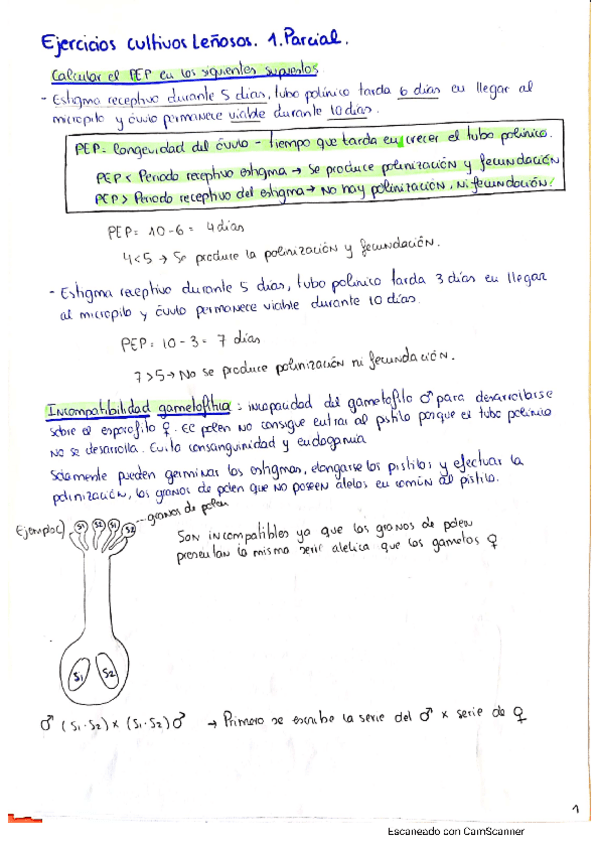 Ejercicios cultivos Leñosos. 1.Parcial.
Calcular el PEP en los siguientes supuestos
- Estigma receptivo durante 5 días, tubo polínico tarda 6 días en llegar al
micropilo y óvulo permanece viable durante 10 días.
PEP= Longevidad del óvulo - tiempo que tarda en crecer el tubo polínico.
PEP < Periodo receptivo estigma → Se produce polinización y fecundación
PEP > Periodo receptivo del estigma → No hay polinización, ni fecundación.
PEP= 10-6= 4 días
4<5 → Se produce la polinización y fecundación.
- Estigma receptivo durante 5 días, tubo polínico tarda 3 días en llegar
al micropilo y óvulo permanece viable durante 10 días.
PEP= 10-3= 7 días
7>5 → No se produce polinización ni fecundación.
Incompatibilidad gametofítica: incapacidad del gametofito ♂ para desarrollarse
sobre el esporofito ♀. El polen no consigue entrar al pistilo porque el tubo polínico
no se desarrolla. Evita consanguinidad y endogamia
Solamente pueden germinar los estigmas, elongarse los pistilos y efectuar la
polinización, los granos de polen que no poseen alelos en común al pistilo.
Ejemplo() S1 S2 S1 S2 --- granos de polen
Son incompatibles ya que los granos de polen
presentan la misma serie alélica que los gametos ♀
S1 S2
♂ (S1·S2) x (S1·S2) ♂ → Primero se escribe la serie del ♂ x serie de ♀
1
Escaneado con CamScanner